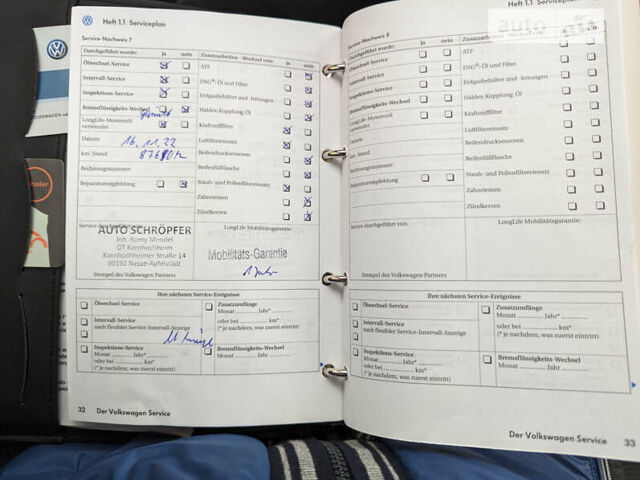 Heft 1.1 Serviceplan
Service-Nachweis 7
Durchgeführt wurde: ja nein
Zusatzarbeiten - Wechsel von: ja nein
Ölwechsel-Service
Intervall-Service
Inspektions-Service
Bremsflüssigkeits-Wechsel
LongLife-Motorenöl
verwendet
Datum: 16.11.22
km-Stand:
Rechnungsnummer:
Reparaturempfehlung
ATF
DSG®: Öl und Filter
Erdgasbehälter und -leitungen
Haldex-Kupplung: Öl
Kraftstofffilter
Luftfiltereinsatz
Reifendrucksensoren
Reifenfüllflasche
Staub- und Pollenfiltereinsatz
Zahnriemen
Zündkerzen
Service durchgeführt von:
AUTO SCHRÖPFER
Inh. Romy Mendel
OT Kornhochheim
Kornhochheimer Straße 14
99192 Nesse-Apfelstädt
Stempel des Volkswagen Partners
LongLife Mobilitätsgarantie:
Mobilitäts-Garantie
1 Jahr
Ihre nächsten Service-Ereignisse
Ölwechsel-Service
Intervall-Service
nach flexibler Service-Intervall-Anzeige
Inspektions-Service
Monat Jahr*
oder bei km*
(* je nachdem, was zuerst eintritt)
Zusatzumfänge
Monat Jahr*
oder bei km*
(* je nachdem, was zuerst eintritt)
Bremsflüssigkeits-Wechsel
Monat Jahr
32 Der Volkswagen Service
Heft 1.1 Serviceplan
Service-Nachweis 8
Durchgeführt wurde: ja nein
Zusatzarbeiten - Wechsel von:
Ölwechsel-Service
Intervall-Service
Inspektions-Service
Bremsflüssigkeits-Wechsel
LongLife-Motorenöl
verwendet
Datum:
km-Stand:
Rechnungsnummer:
Reparaturempfehlung
ATF
DSG®: Öl und Filter
Erdgasbehälter und -leitungen
Haldex-Kupplung: Öl
Kraftstofffilter
Luftfiltereinsatz
Reifendrucksensoren
Reifenfüllflasche
Staub- und Pollenfiltereinsatz
Zahnriemen
Zündkerzen
Service durchgeführt von:
LongLife Mobilitätsgarantie:
Stempel des Volkswagen Partners
Ihre nächsten Service-Ereignisse
Ölwechsel-Service
Intervall-Service
nach flexibler Service-Intervall-Anzeige
Inspektions-Service
Monat Jahr*
oder bei km*
(* je nachdem, was zuerst eintritt)
Zusatzumfänge
Monat Jahr*
oder bei km*
(* je nachdem, was zuerst eintritt)
Bremsflüssigkeits-Wechsel
Monat Jahr
Der Volkswagen Service 33